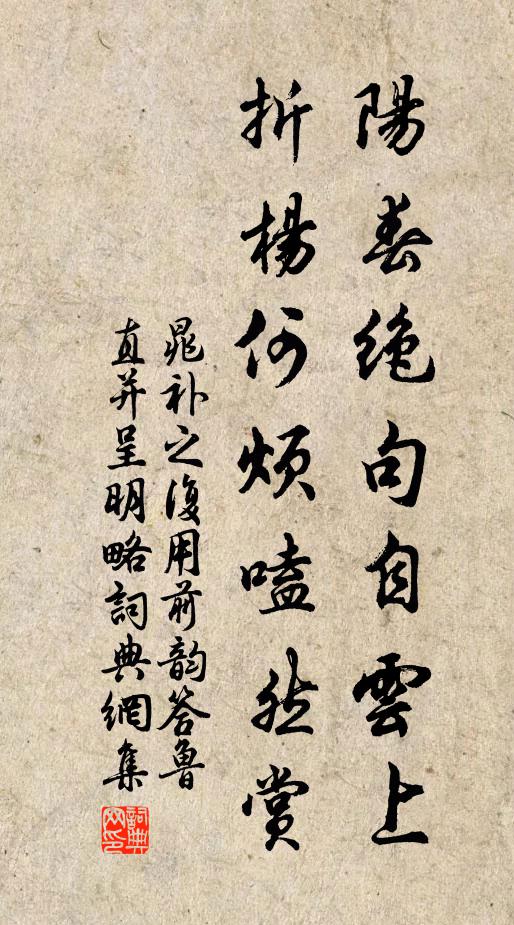 陽春絶句自雲上
折楊何煩嗑然賞
晁补之復用前韵答魯
直并呈明略詞典網集
詞典网印